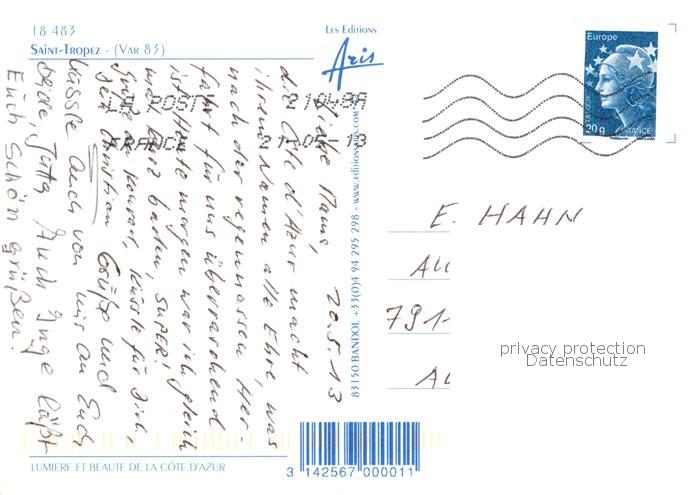 18 483
SAINT-TROPEZ - (VAR 83)
Les Editions
Aris
Europe
20 g
FRANCE
LA POSTE
21048A
FRANCE
21-05-13
20.5.13
Liebe Mama,
die Côte d'Azur macht
ihrem Namen alle Ehre, was
nach der regennassen Her
fahrt für uns überraschend
ist. Heute morgen war ich gleich
mal kurz baden, super!
Grüße an Konrad, Küssle für Dich
Christian Grüße und
Küssle Auch von mir an Euch
beide, Jutta Auch Inge läßt
Euch schön grüßen!
83150 BANDOL +33(0)4 94 295 298 - www.editionsaris.com
E. HAHN
791
privacy protection
Datenschutz
LUMIERE ET BEAUTE DE LA CÔTE D'AZUR
3 142567 000011